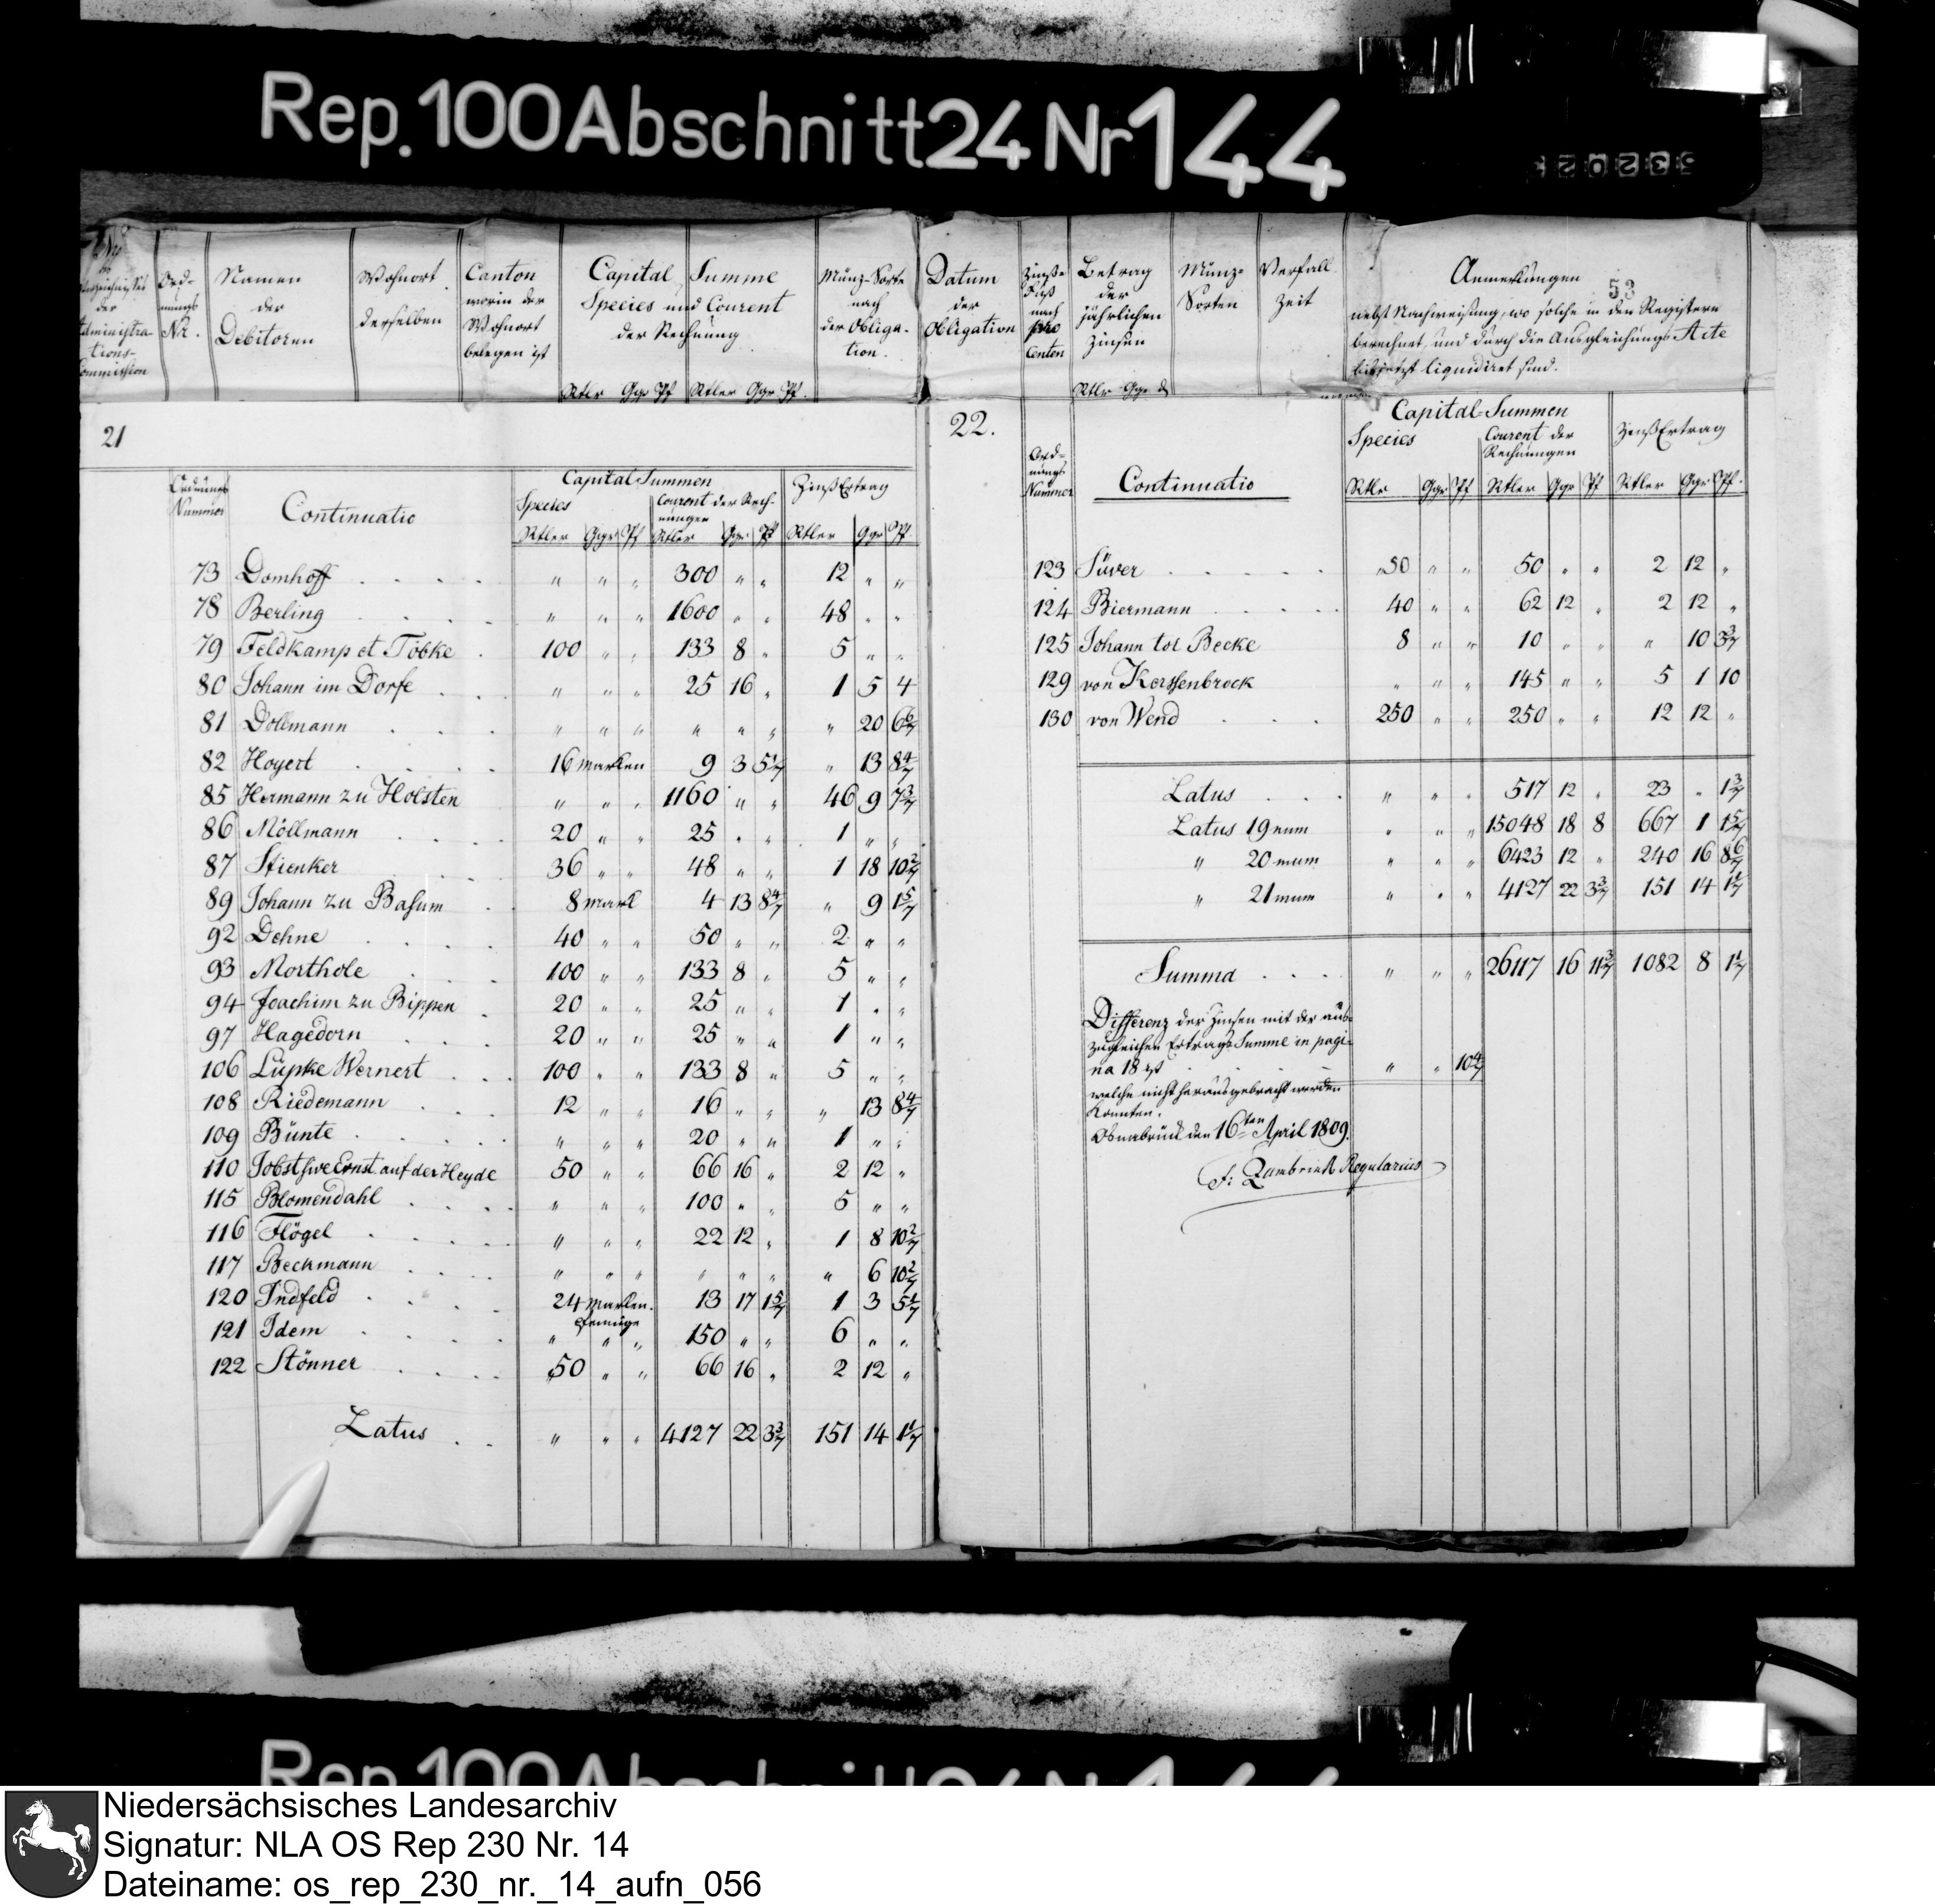 Rep. 100 Abschnitt 24 Nr 144
53
Ordnungs Nr.
Namen der Debitoren
Wohnort derselben
Canton worin der Wohnort belegen ist
Capital Summe Species und Courent der Rechnung
Rtlr Ggr Pf Rtler Ggr Pf.
Münz-Sorte nach der Obligation.
Datum der Obligation
Zinß-Fuß nach pro Centen
Betrag der jährlichen Zinsen
Rtlr Ggr
Münz-Sorten
Verfall Zeit
Anmerkungen
nebst Nachweisung, wo solche in den Registern
berechnet, und durch die Ausgleichungs Acte
liquidiret sind.
21
Ordnungs Nummer
Continuatio
Capital Summen
Species
Courent der Rechnungen
Zinß Ertrag
Rtler Ggr Pf Rtler Ggr Pf Rtler Ggr Pf.
73 Domhoff . . . . " " " 300 " " 12 " "
78 Berling . . . . " " " 1600 " " 48 " "
79 Feldkamp et Töbke . 100 " " 133 8 " 5 " "
80 Johann im Dorfe . . " " " 25 16 " 1 5 4
81 Dollmann . . . " " " " " " " 20 6 6/7
82 Hoyert . . . . 16 marken 9 3 5 1/7 " 13 8 4/7
85 Hermann zu Holsten " " " 1160 " " 46 9 7 3/7
86 Möllmann . . . 20 " " 25 " " 1 " "
87 Stienker . . . 36 " " 48 " " 1 18 10 2/7
89 Johann zu Basum . 8 mark 4 13 8 4/7 " 9 1 5/7
92 Dehne . . . . 40 " " 50 " " 2 " "
93 Morthole . . . 100 " " 133 8 " 5 " "
94 Joachim zu Bippen . 20 " " 25 " " 1 " "
97 Hagedorn . . . 20 " " 25 " " 1 " "
106 Lüpke Wernert . . . 100 " " 133 8 " 5 " "
108 Riedemann . . . 12 " " 16 " " " 13 8 4/7
109 Bünte . . . . . " " " 20 " " 1 " "
110 Jobst sive Ernst auf der Heyde 50 " " 66 16 " 2 12 "
115 Blomendahl . . . . " " " 100 " " 5 " "
116 Flögel . . . . " " " 22 12 " 1 8 10 2/7
117 Beckmann . . . . " " " " " " " 6 10 2/7
120 Indfeld . . . . 24 marken 13 17 1 5/7 1 3 5 1/7
pfennige
121 Idem . . . . " " " 150 " " 6 " "
122 Stönner . . . . 50 " " 66 16 " 2 12 "
Latus . . " " " 4127 22 3 3/7 151 14 1 1/7
22.
Ordnungs Nummer
Continuatio
Capital-Summen
Species
Courent der Rechnungen
Zinß Ertrag
Rtlr Ggr Pf Rtler Ggr Pf Rtler Ggr Pf.
123 Süver . . . . . 50 " " 50 " " 2 12 "
124 Biermann . . . . 40 " " 62 12 " 2 12 "
125 Johann tor Becke 8 " " 10 " " " 10 3 3/7
129 von Korssenbrock " " " 145 " " 5 1 10
130 von Wend . . . 250 " " 250 " " 12 12 "
Latus . . . " " " 517 12 " 23 " 1 3/7
Latus 19num " " " 15048 18 8 667 1 1 5/7
" 20mum " " " 6423 12 " 240 16 8 6/7
" 21mum " " " 4127 22 3 3/7 151 14 1 1/7
Summa . . . . " " " 26117 16 11 3/7 1082 8 1 1/7
Differenz der Zinsen mit der aus-
zugleichen Ertrags Summe in pagi-
na 18 ist . . . " " 10 4/7
welche nicht herausgebracht werden
konnten.
Osnabrück den 16ten April 1809.
Regularius
Niedersächsisches Landesarchiv
Signatur: NLA OS Rep 230 Nr. 14
Dateiname: os_rep_230_nr._14_aufn_056